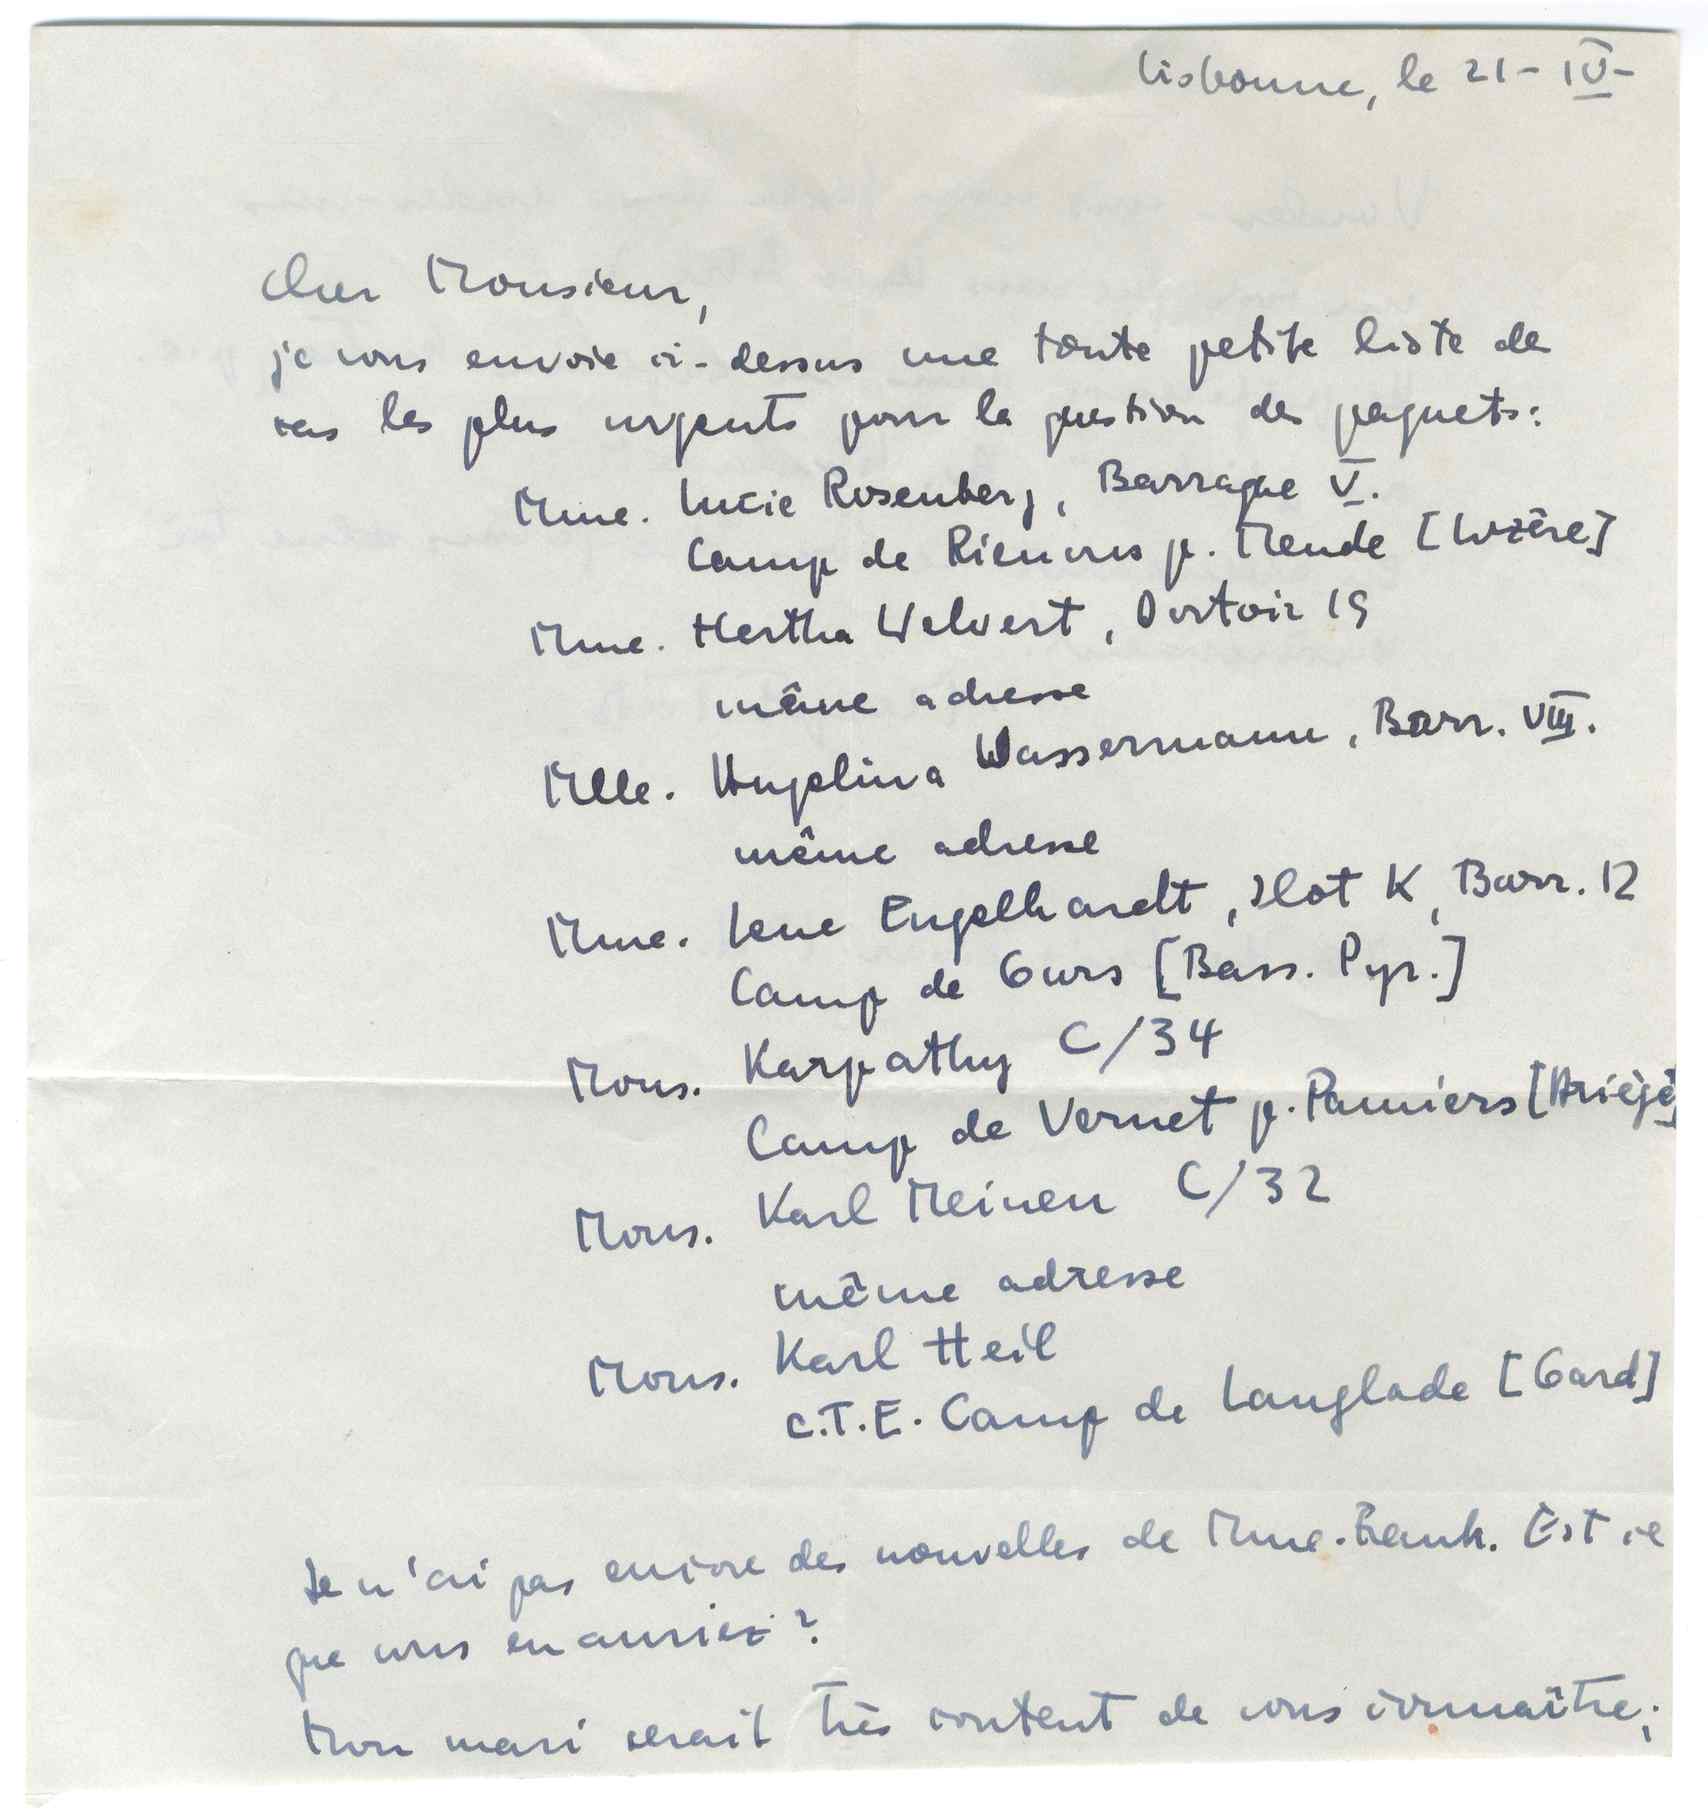 Lisbonne, le 21-IV-
Cher Monsieur,
je vous envoie ci-dessus une toute petite liste de
cas les plus urgents pour la question des paquets:
Mme. Lucie Rosenberg, Barraque V.
Camp de Rieucros p. Mende [Lozère]
Mme. Hertha Walvert, Dortoir 19
même adresse
Mlle. Angelina Wassermann, Barr. VIII.
même adresse
Mme. Lene Engelhardt, Ilot K, Barr. 12
Camp de Gurs [Bass. Pyr.]
Mons. Karpathy C/34
Camp de Vernet p. Pamiers [Ariège]
Mons. Karl Meinen C/32
même adresse
Mons. Karl Heil
C.T.E. Camp de Langlade [Gard]
Je n'ai pas encore des nouvelles de Mme. Est ce
que vous en auriez?
Mon mari serait très content de vous connaître;